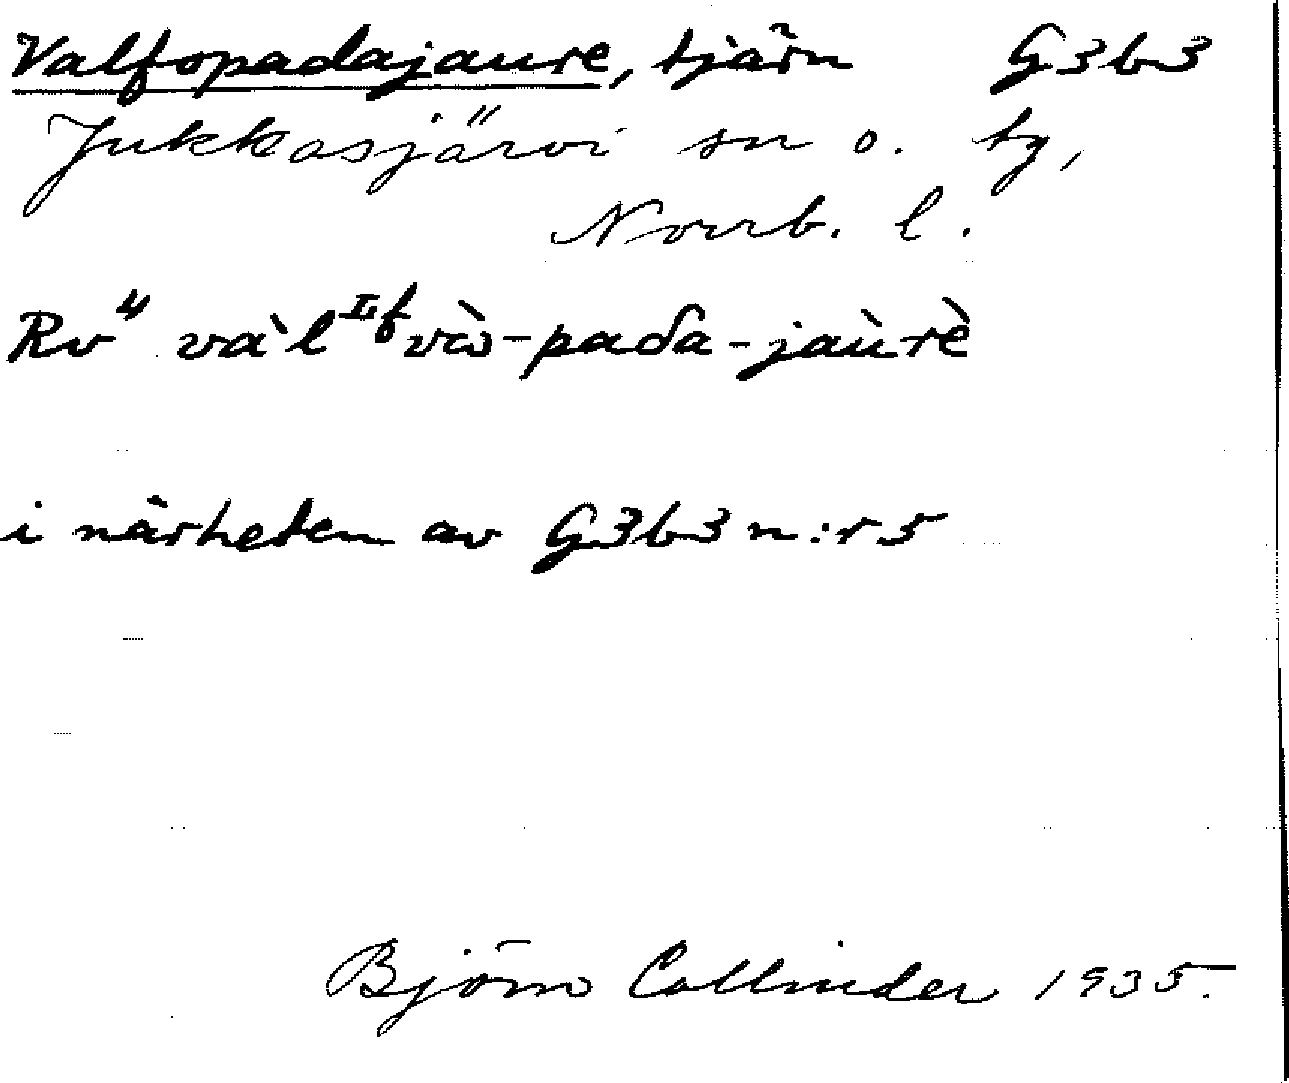 Valfopadajaure, tjärn G3b3
Jukkasjärvi sn o. tg,
Norrb. l.
Rv⁴ và'l ᴵᴸf vὼ-paδa-jaùrè
i närheten av G3b3 n:r 5
Björn Collinder 1935.